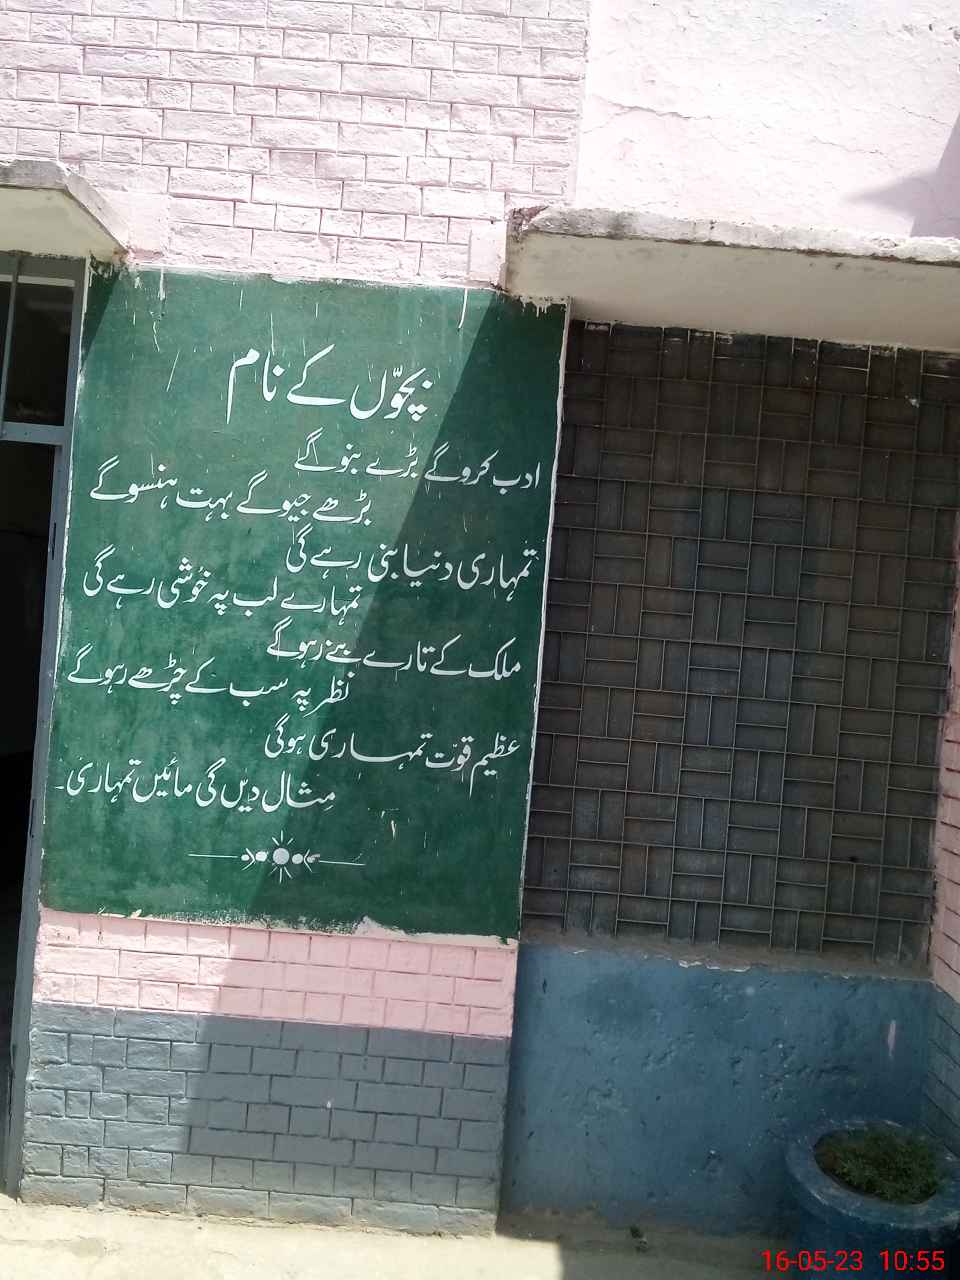 بچّوں کے نام
ادب کروگے بڑے بنوگے
بڑھے جیوگے بہت ہنسوگے
تمہاری دنیا بنی رہے گی
تمہارے لب پہ خوشی رہے گی
ملک کے تارے بنے رہوگے
نظر پہ سب کے چڑھے رہوگے
عظیم قوّت تمہاری ہوگی
مثال دیں گی مائیں تمہاری۔
16-05-23 10:55